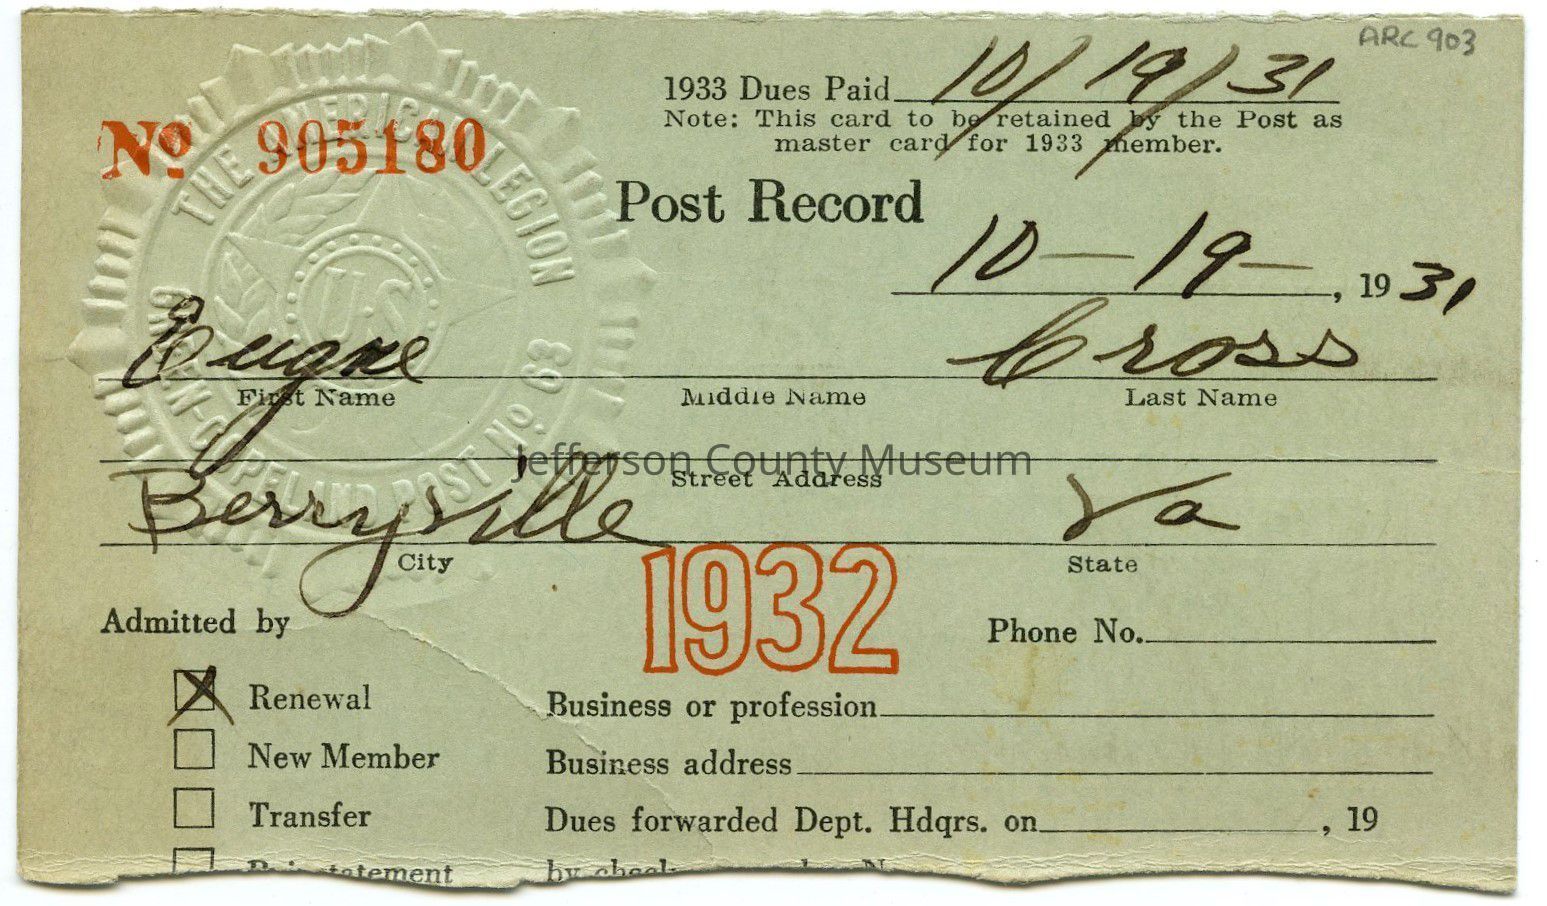 ARC 903
1933 Dues Paid 10/19/31
Note: This card to be retained by the Post as
master card for 1933 member.
No 905180
THE AMERICAN LEGION
U.S.
POST No. 63
Post Record
10-19-, 1931
Eugne Cross
First Name Middle Name Last Name
Jefferson County Museum
Street Address
Berryville Va
City State
1932
Admitted by Phone No.
Renewal Business or profession
New Member Business address
Transfer Dues forwarded Dept. Hdqrs. on , 19
Reinstatement by check